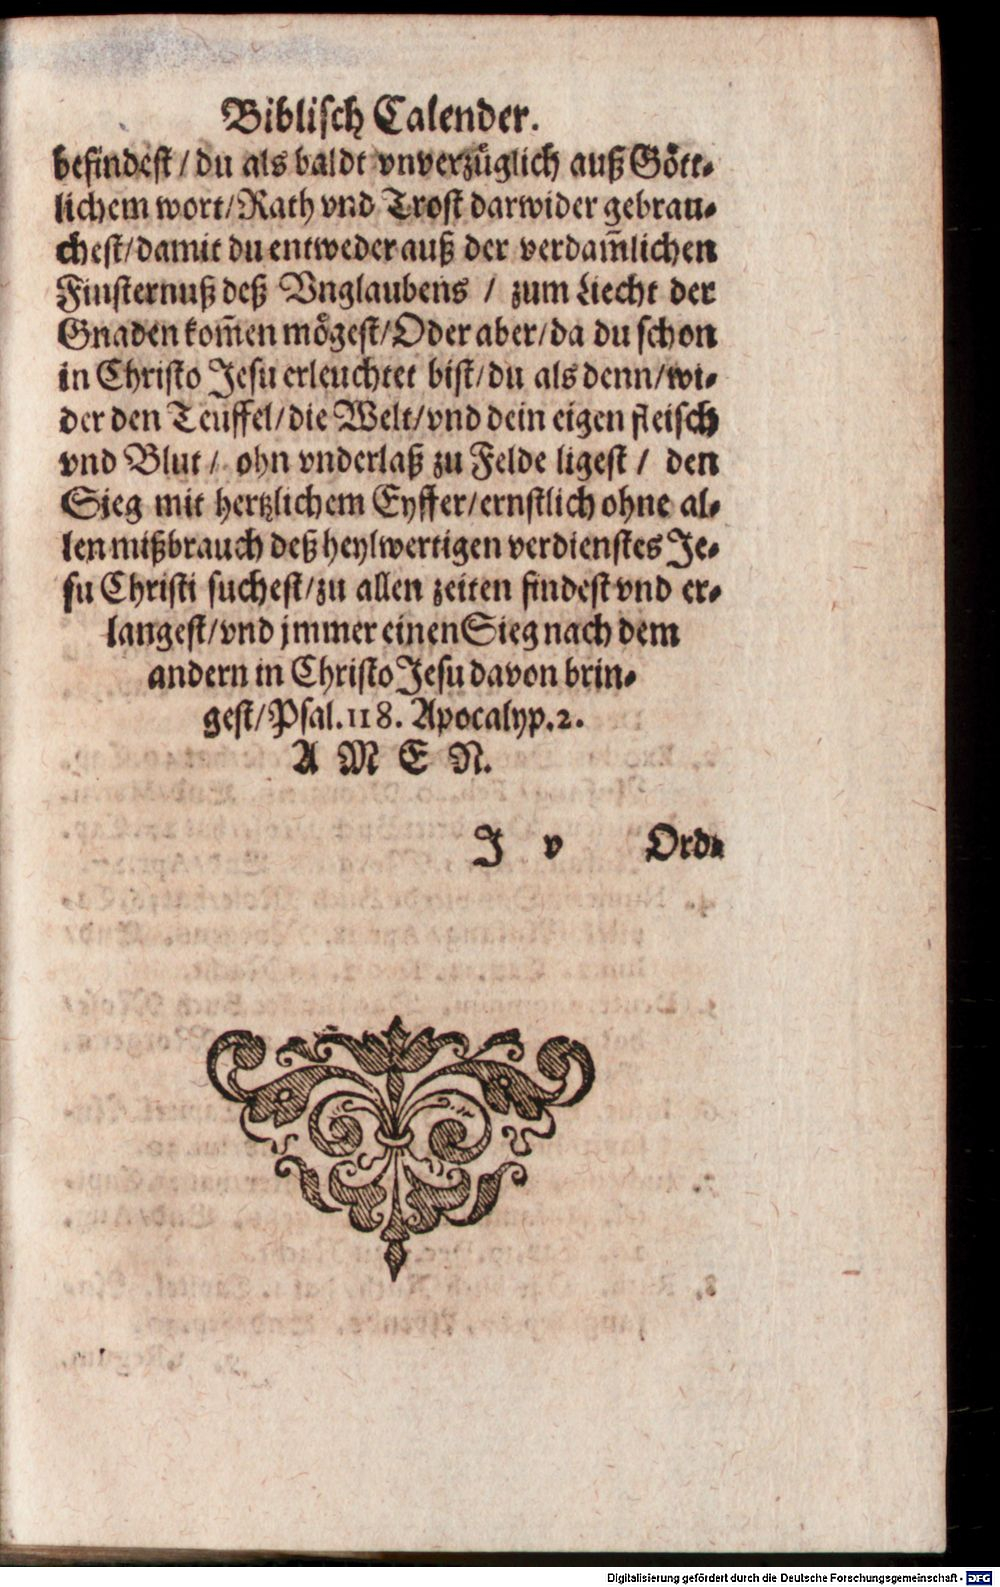 Biblisch Calender.
befindest / du als baldt vnverzůglich auß Gött-
lichem wort/Rath vnd Trost darwider gebrau-
chest/damit du entweder auß der verdam̃lichen
Finsternuß deß Vnglaubens / zum Liecht der
Gnaden kom̃en mögest/Oder aber/da du schon
in Christo Jesu erleuchtet bist/du als denn/wi-
der den Teuffel/die Welt/vnd dein eigen fleisch
vnd Blut / ohn vnderlaß zu Felde ligest / den
Sieg mit hertzlichem Eyffer/ernstlich ohne al-
len mißbrauch deß heylwertigen verdienstes Je-
su Christi suchest/zu allen zeiten findest vnd er-
langest/vnd jmmer einen Sieg nach dem
andern in Christo Jesu davon brin-
gest/Psal.118. Apocalyp.2.
A M E N.
J v Ord-
Digitalisierung gefördert durch die Deutsche Forschungsgemeinschaft - DFG